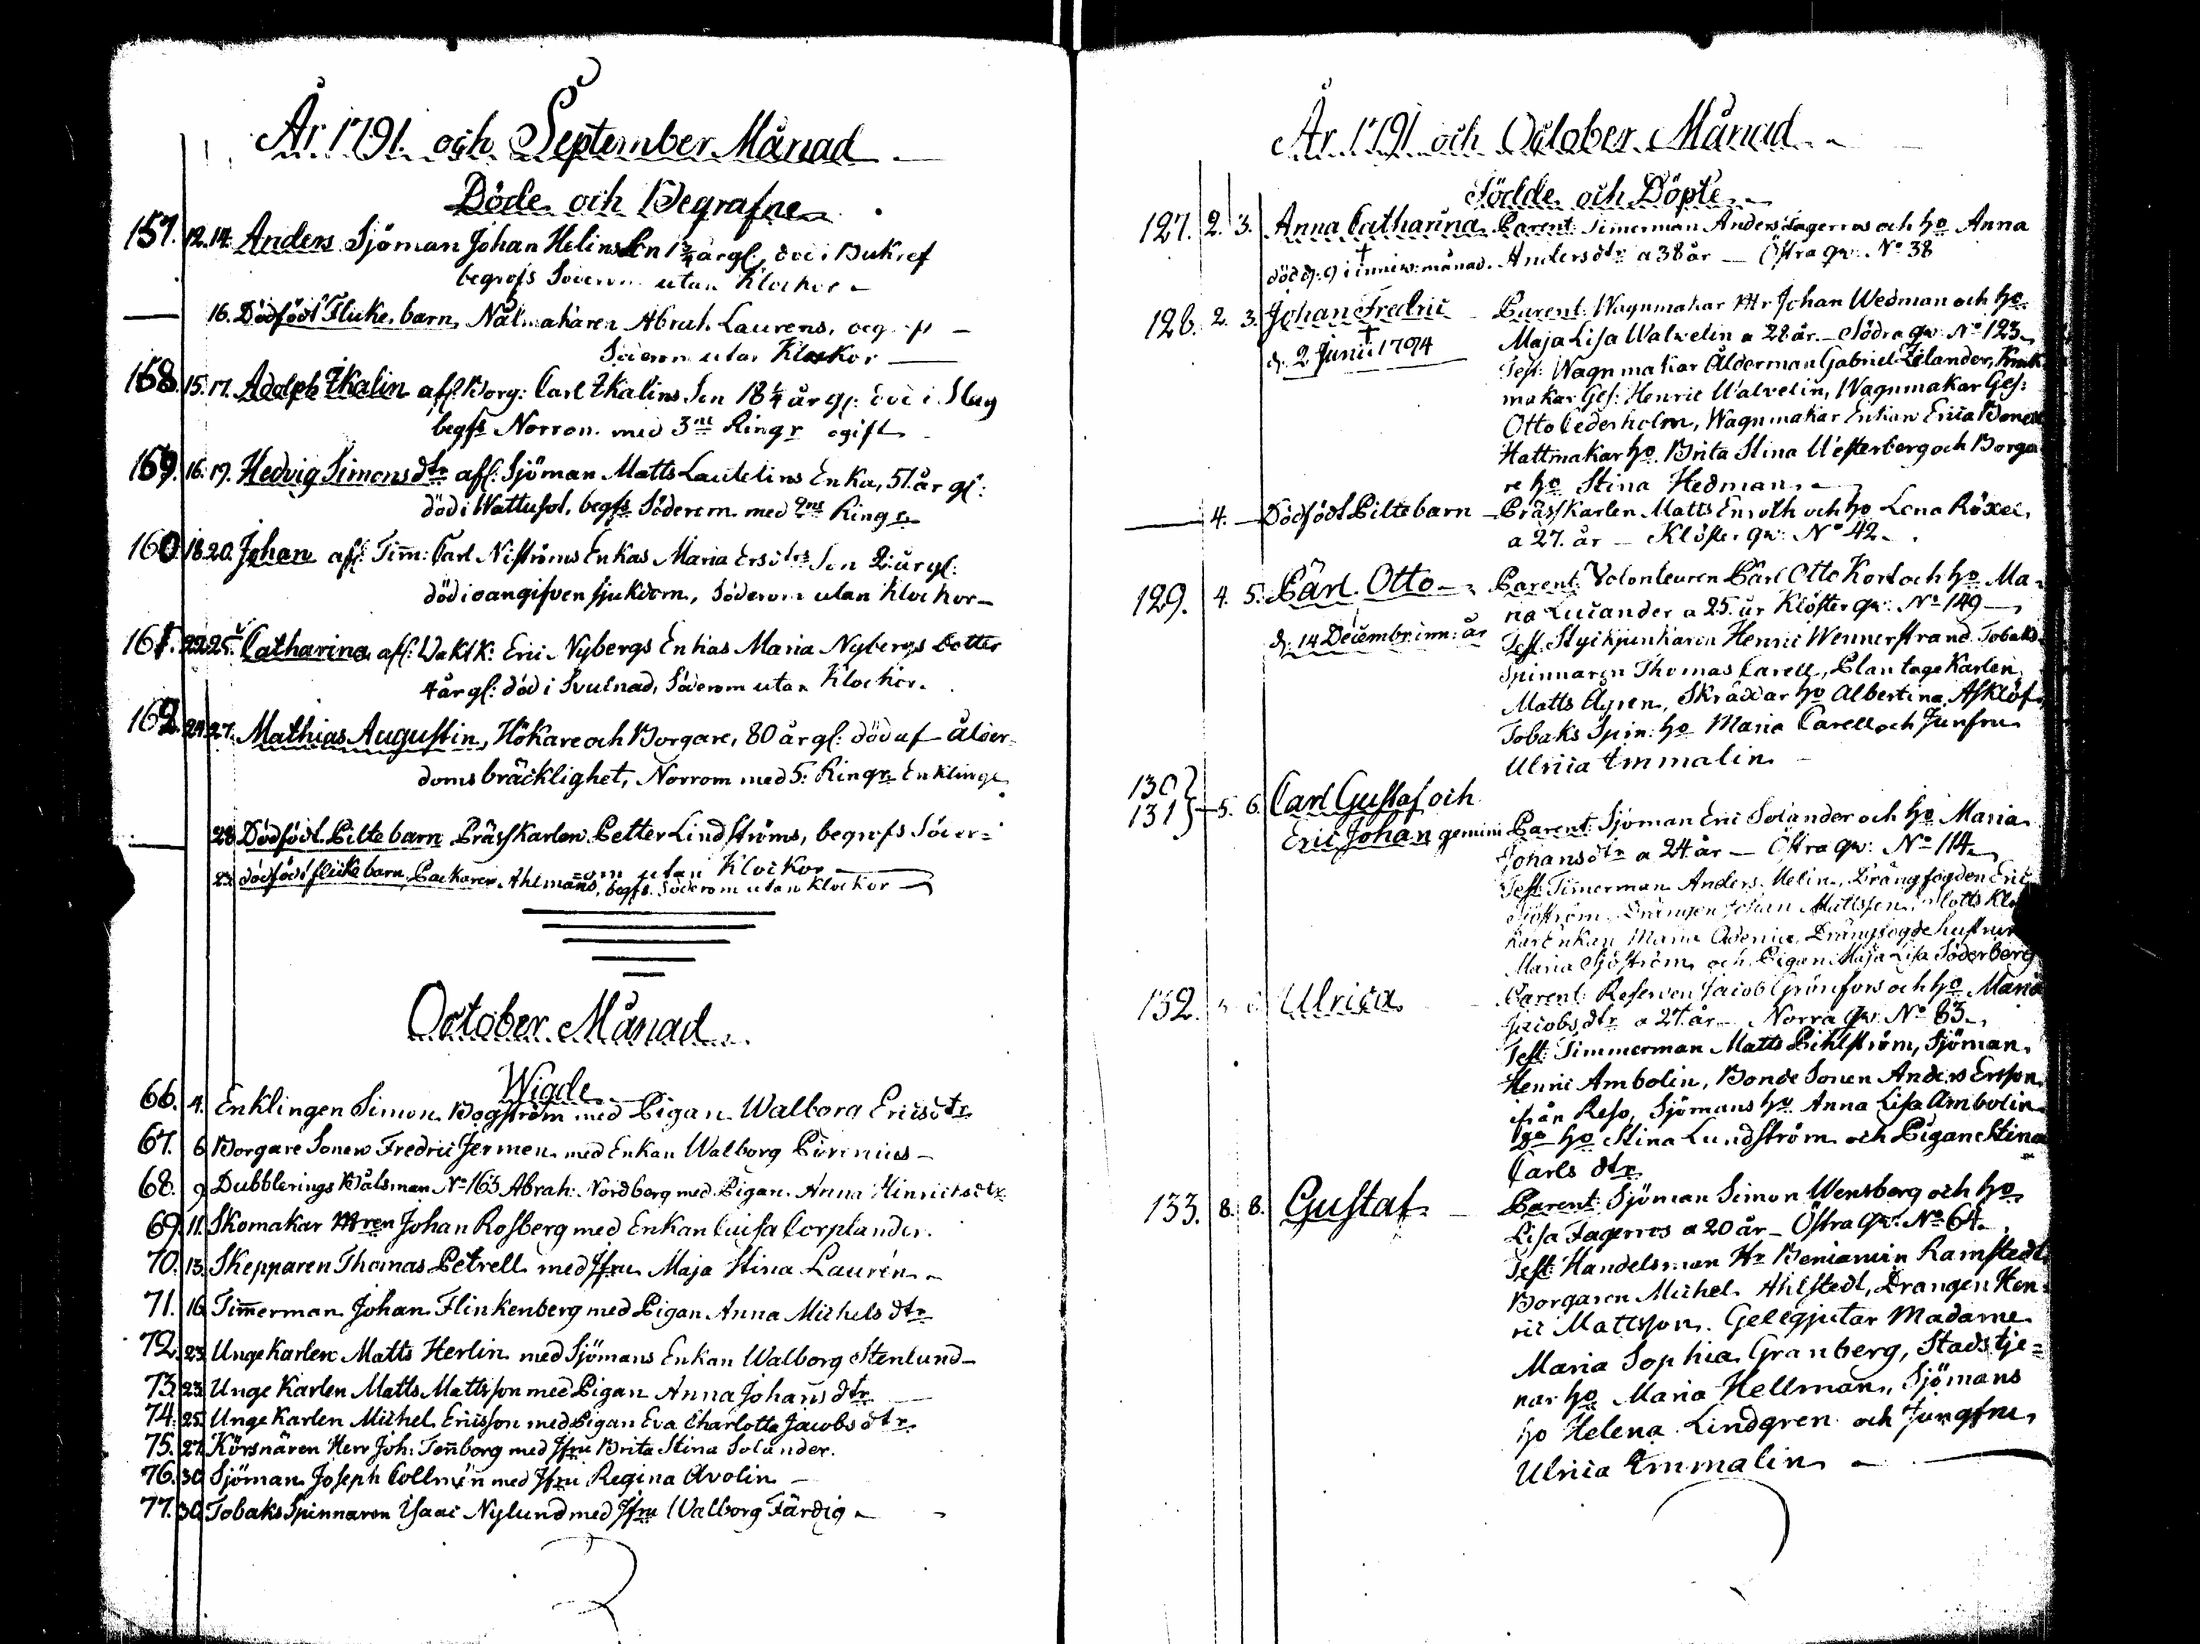 År 1791. och September Månad
Döde och Begrafne
157. 12. 14. Anders Sjöman Johan Helins Son 1 3/4 år gl:, död i Bukref
begrofs Söderom utan Klockor
16. Dödfödt Flicke barn, Nålmakaren Abrah. Laurens,
Söderom utan Klockor
158. 15. 17. Adolph Zkalin afl: Borg: Carl Zkalins Son 18 1/4 år gl: död i Slag
begfs Norrom med 3ne Ringr ogift
159. 16. 19. Hedvig Simons dtr afl: Sjöman Matts Lautelins Enka, 51 år gl:
död i Wattusot, begfs Söderom med 2ne Ringr
160. 18. 20. Johan afl: Tim̄: Carl Niströms Enkas Maria Ersdtrs Son 2 år gl:
död i oangifven sjukdom, Söderom utan Klockor
161. 22. 25. Catharina afl: Waktk: Eric Nybergs Enkas Maria Nybergs Dotter
4 år gl: död i Svulnad, Söderom utan Klockor.
162. 24. 27. Mathias Augustin, Hökare och Borgare, 80 år gl: död af ålder=
doms bräcklighet, Norrom med 5: Ringr Enkling
28. Dödfödt Pilte barn Bräsfkarlen Petter Lindströms, begrofs Söder=
=om utan Klockor
23. dödfödt flicke barn, Packaren Ahlmans, begfs. Söderom utan klockor
October Månad.
Wigde
66. 4. Enklingen Simon Bogström med Pigan Walborg Ericsdtr
67. 6 Borgare Sonen Fredric Jermen med Enkan Walborg Pürenius
68. 9 Dubblerings Båtsman No 163 Abrah: Nordberg med Pigan Anna Hinricsdtr
69. 11. Skomakar Mren Johan Rosberg med Enkan Luisa Corplander.
70. 13. Skepparen Thomas Petrell med Jfru Maja Stina Laurén
71. 16. Tim̄erman Johan Flinkenberg med Pigan Anna Michels dtr
72. 23. Unge Karlen Matts Herlin med Sjömans Enkan Walborg Stenlund
73. 23. Unge Karlen Matts Mattsson med Pigan Anna Johans dtr
74. 25. Unge Karlen Michel Ericsson med Pigan Eva Charlotta Jacobs dtr
75. 27. Körsnären Herr Joh: Ten̄borg med Jfru Brita Stina Solander.
76. 30. Sjöman Joseph Collmén med Jfru Regina Avolin
77. 30. Tobaks Spinnaren Isaac Nylund med Jfru Walborg Färdig
År 1791 och October Månad
Födde och Döpte
127. 2. 3. Anna Catharina Parent: Timerman Anders Fagerros och ho Anna
död d. 9 i innev: månad. Anders dtr a 38 år — Östra qv: No 38
128. 2. 3. Johan Fredric Parent: Wagnmakar Mr Johan Wedman och ho
d. 2 Junii 1794 Maja Lisa Walvelin a 28 år — Södra qv: No 123
Test: Wagnmakar Ålderman Gabriel Zelander, Kruk
makar Ges: Henric Walvelin, Wagnmakar Ges:
Otto Cederholm, Wagnmakar Enkan Erica
Hattmakar ho Brita Stina Westerberg och Borga
re ho Stina Hedman.
4. Dödfödt Piltebarn Bräsfkarlen Matts Enroth och ho Lena Röxel,
a 27. år — Klöster qv: No 42
129. 4. 5. Carl Otto Parent: Volonteuren Carl Otto Kort och ho Ma=
ria Lucander a 25. år Klöster qv: No 149
d. 14 Decembr: inn: år Test: Styckjunkaren Henric Wennerstrand Tobaks
Spinnaren Thomas Carell, Plantage Karlen
Matts Agren, Skräddar ho Albertina Asklöf,
Tobaks Spin: ho Maria Carell och Junfru
Ulrica Emmalin
130 }
131 } 5. 6 Carl Gustaf och
Eric Johan gemini Parent: Sjöman Eric Solander och ho Maria
Johans dtr a 24 år — Östra qv: No 114
Test: Timerman Anders Melin, Drängfogden Eric
Sjöström Drängen Johan Mattsson, Slotts Klo
kar Enkan Maria Adenia, Drängfogde hustrun
Maria Sjöström och Pigan Maja Lisa Söderberg
132. Ulrica Parent: Reserven Jacob Grönfors och ho Maria
Jacobs dtr a 27. år — Norra qv: No 63
Test: Timmerman Matts Pihlström, Sjöman
Henric Ambolin, Bonde Sonen Anders Ersson
från Reso, Sjömans ho Anna Lisa Ambolin
Do ho Stina Lundström och Pigan Stina
Carls dtr
133. 8. 8. Gustaf Parent: Sjöman Simon Wensberg och ho
Lisa Fagerros a 20 år — Östra qv: No 64
Test: Handelsman Hr Beniamin Ramstedt
Borgaren Michel Ahlstedt, Drangen Hen=
ric Mattsson. Gelegjutar Madame
Maria Sophia Granberg, Stads tje=
nar ho Maria Hellman, Sjömans
ho Helena Lindgren och Jungfru
Ulrica Emmalin